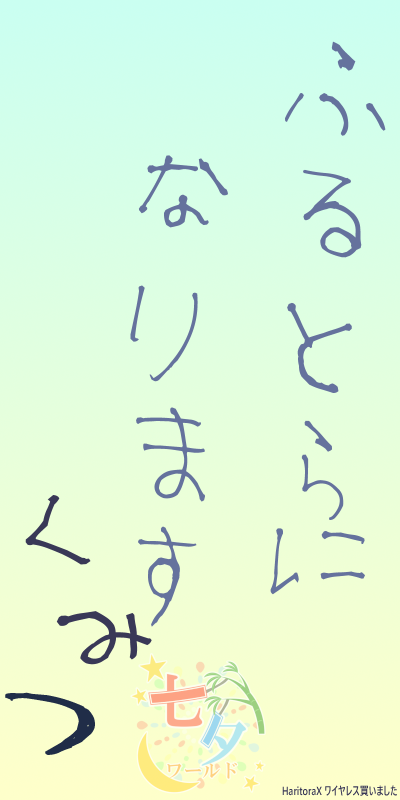 ふるとらに
なります
くみつ
七夕
ワールド
HaritoraX ワイヤレス買いました